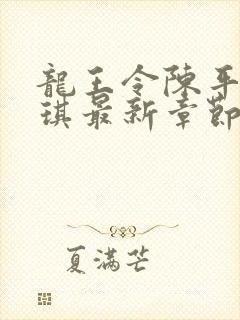 龍王令陳平
琪最新章節
夏滿芒